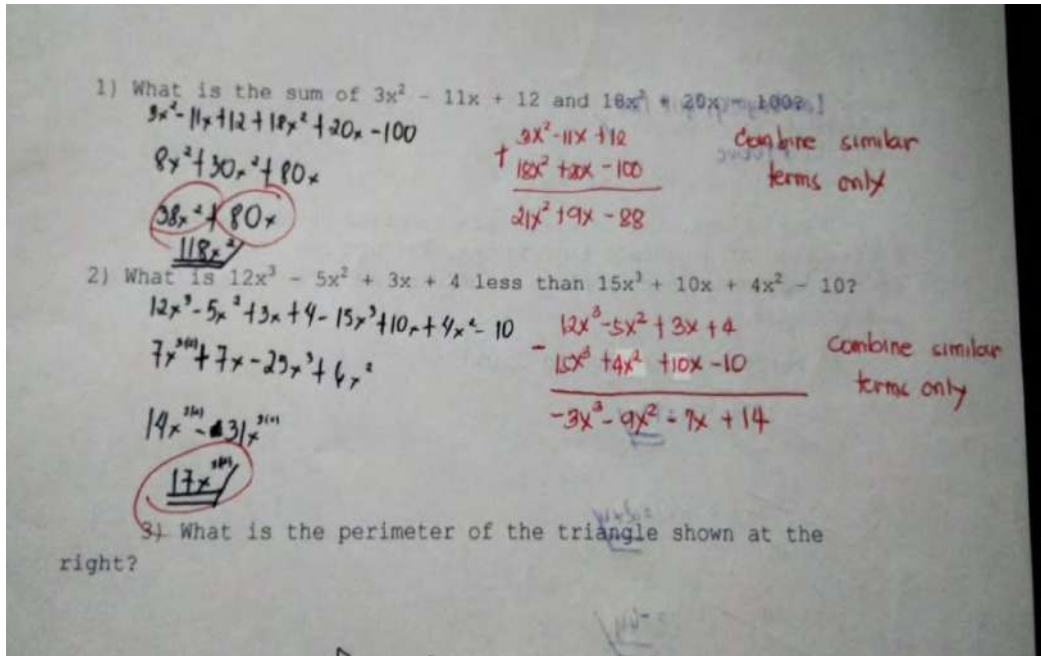 1) What is the sum of 3x² - 11x + 12 and 18x² + 20x - 100?
3x²-11x+12+18x²+20x-100
8x²+30x²+80x
38x²+80x
118x²
3x²-11x+12
+ 18x²+20x-100
21x²+9x-88
Combine similar
terms only
2) What is 12x³ - 5x² + 3x + 4 less than 15x³ + 10x + 4x² - 10?
12x³-5x²+3x+4-15x³+10x+4x²-10
14x
17x
12x³-5x²+3x+4
- 15x³+4x²+10x-10
-3x³-9x²-7x+14
Combine similar
terms only
3) What is the perimeter of the triangle shown at the
right?